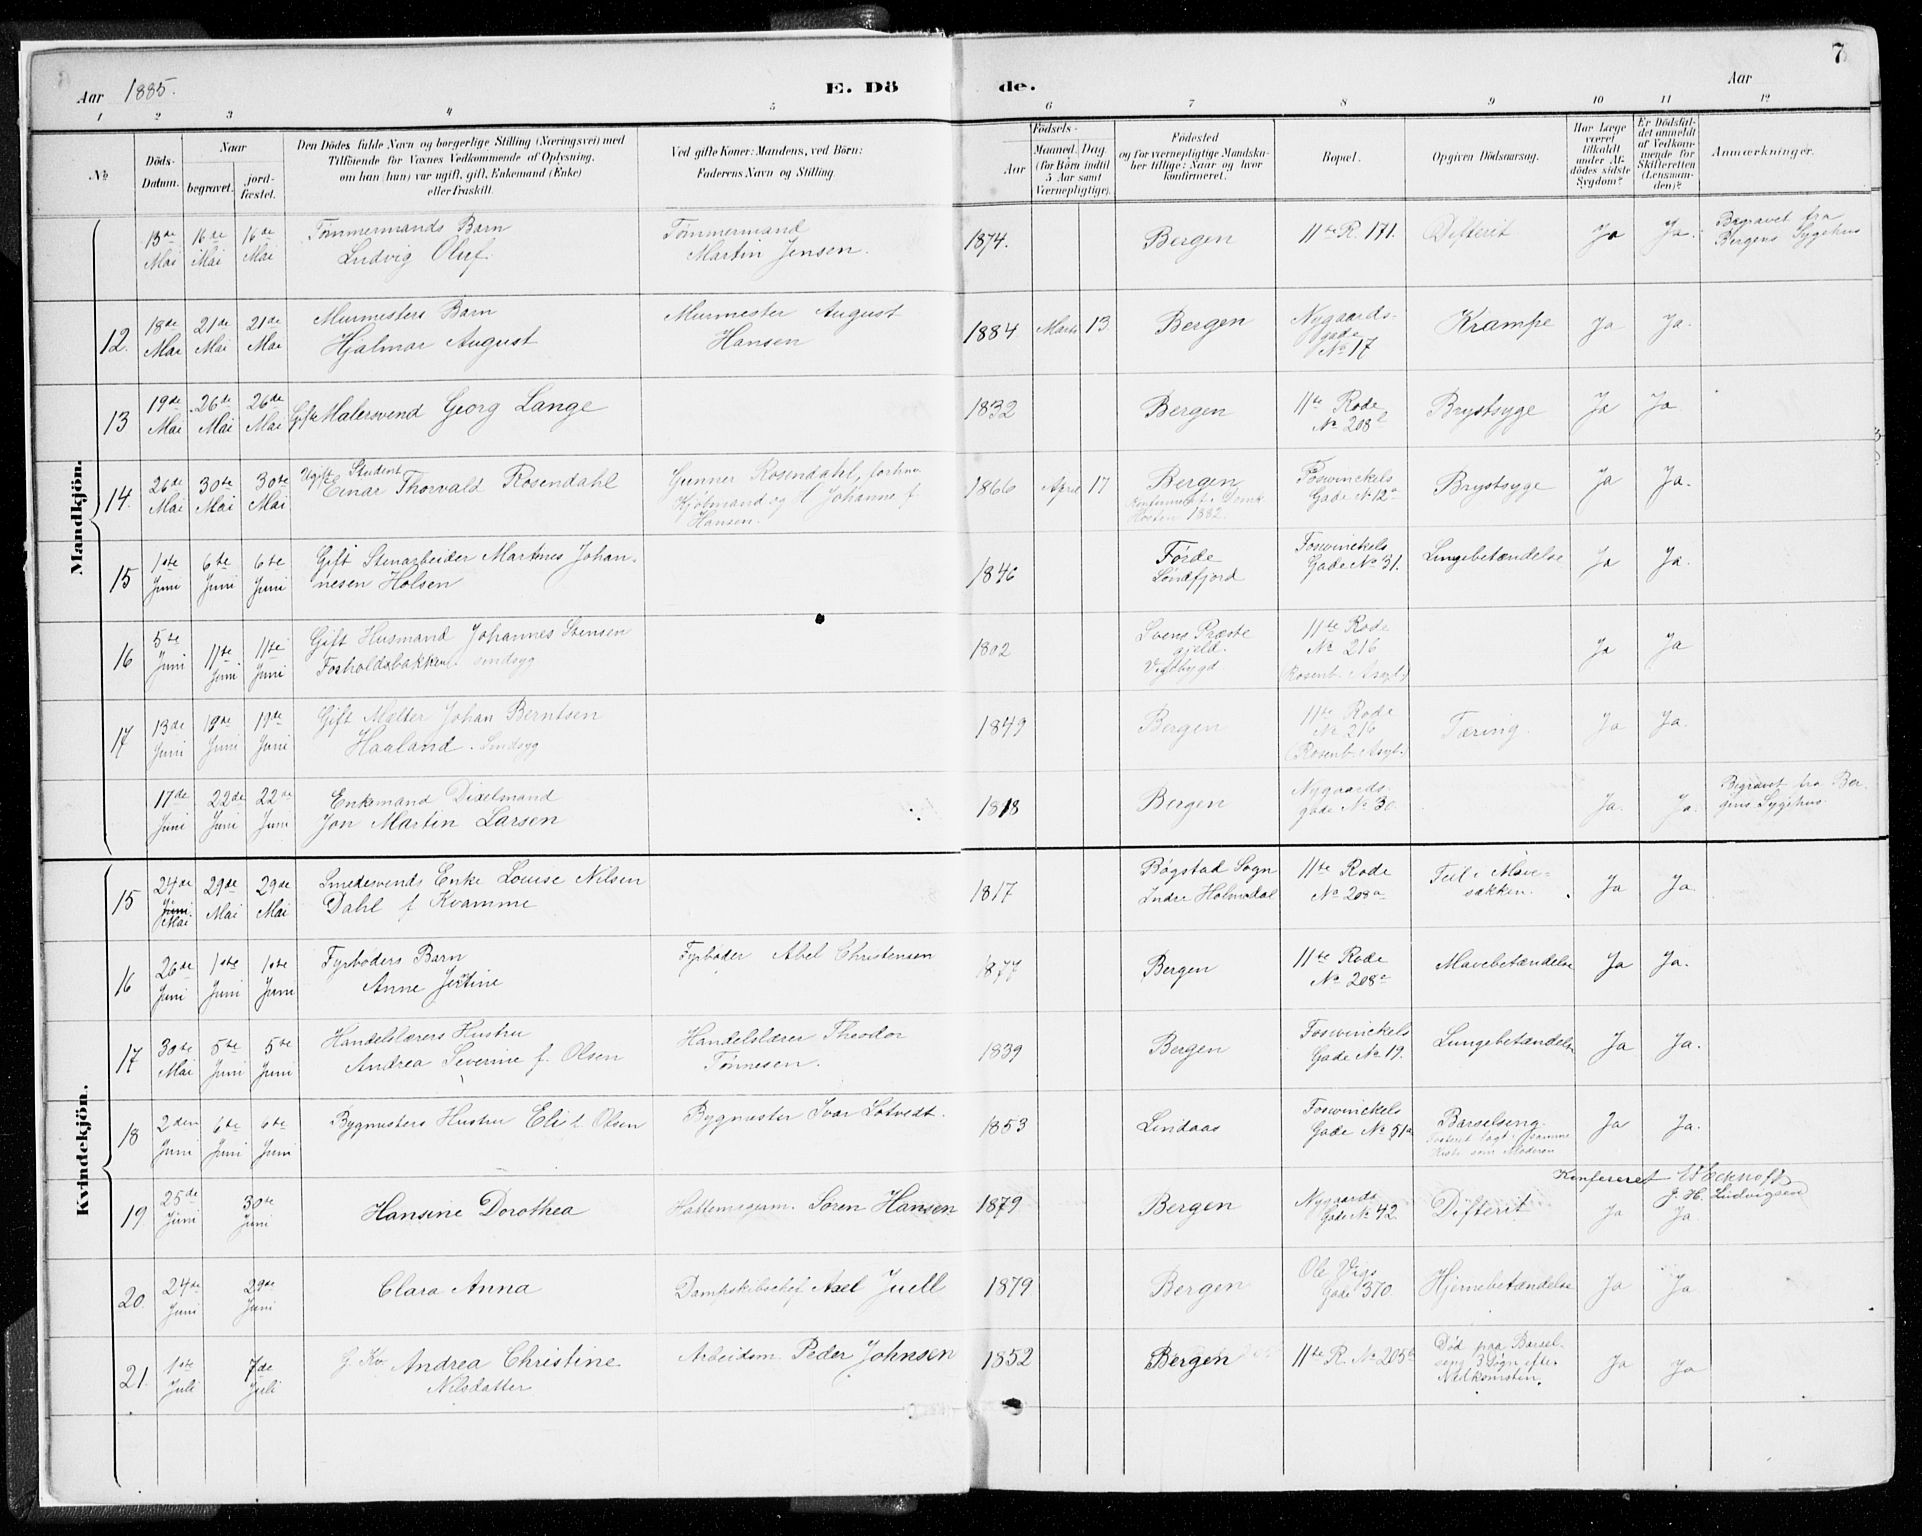 7
Aar 1885.
E. Dö
de.
Aar
1 2 3 4 5 6 7 8 9 10 11 12
No
Döds-Datum.
Naar
begravet.
jord-fæstet.
Den Dödes fulde Navn og borgerlige Stilling (Næringsvei) med
Tilföiende for Voxnes Vedkommende af Oplysning,
om han (hun) var ugift, gift, Enkemand (Enke)
eller fraskilt.
Ved gifte Koner: Mandens, ved Börn:
Faderens Navn og Stilling.
Födsels-
Aar
Maaned. Dag
(for Börn indtil
5 Aar samt
Værnepligtige).
Födested
og for værnepligtige Mandsku-
ber tillige: Naar og hvor
konfirmeret.
Bopæl.
Opgiven Dödsaarsag.
Har Læge
været
tilkaldt
under Af-
dödes sidste
Sygdom?
Er Dödsfal-
det anmeldt
af Vedkom-
mende for
Skifteretten
(Lensman-
den)?
Anmærkninger.
Mandkjön.
13de Mai 16de Mai 16de Mai Tømmermands Barn
Ludvig Oluf.
Tømmermand
Martin Jensen.
1874. Bergen 11te R. 171. Difterit Ja Ja. Begravet fra
Bergens Sygehus
12. 18de Mai 21de Mai 21de Mai Murmesters Barn
Hjalmar August
Murmester August
Hansen
1884 Marts 13. Bergen Nygaards-
gade
No 17
Krampe Ja Ja.
13 19de Mai 26de Mai 26de Mai Gift Malersvend Georg Lange
1832 Bergen 11te Rode
No 208
Brystsyge Ja Ja
14. 26de Mai 30te Mai 30te Mai Ugift Student
Einar Thorvald Rosendahl
Gunner Rosendahl, forhnv.
Kjøbmand og Johanne f.
Hansen.
1866 April 17 Bergen
Høsten 1882.
Foswinckels
Gade No 12a
Brystsyge Ja Ja.
15 1ste Juni 6te Juni 6te Juni Gift Stenarbeider Martines Johan-
nesen Holsen
1846 Førde
Søndfjord
Foswinckels
Gade No 31.
Lungebetændelse Ja Ja.
16 5te Juni 11te Juni 11te Juni Gift Husmand Johannes Stensen
Fosholdsbakken. sindsyg
1802 Præste
gjeld.
11te Rode
No 216
(Rosenb. Asyl.)
Ja Ja
17 13de Juni 19de Juni 19de Juni Gift Matter Johan Berntsen
Haaland. Sindsyg
1849 Bergen 11te Rode
No 216
(Rosenb. Asyl.)
Tæring. Ja Ja.
17de Juni 22de Juni 22de Juni Enkemand Dixelmand
Jon Martin Larsen
1818 Bergen Nygaards-
gade No 30.
Ja. Ja. Begravet fra Ber-
gens Sygehus.
Kvindekjön.
15 24de Mai 29de Mai 29de Mai Smedesvends Enke Louise Nilsen
Dahl f. Kvamme
1817 Bøgstad Sogn
Indre Holmedal
11te Rode
No 208a
Feil i Mave-
sækken.
Ja Ja.
16 26de Juni 1ste Juni 1ste Juni Fyrbøders Barn
Anne Jertine
Fyrbøder Abel Christensen
1877 Bergen 11te Rode
No 208
Mavebetændelse Ja Ja.
17 30te Mai 5te Juni 5te Juni Handelslærers Hustru
Andrea Severine f. Olsen
Handelslærer Theodor
Tønnesen.
1839 Bergen Foswinckels
Gade No 19.
Lungebetændelse Ja Ja.
18 2den Juni 6te Juni 6te Juni Bygmesters Hustru Elis f. Olsen
Bygmester Ivar Lotvedt.
1853 Lindaas Foswinckels
Gade No 51a
Barselseng.
Fosteret lagt i samme
Kiste som Moderen
Ja Ja.
Konfereret
J. H. Ludvigsen
19 25de Juni 30te Juni Hansine Dorothea
Hattemagerm. Søren Hansen
1879 Bergen Nygaards
Gade No 42.
Difterit Ja Ja.
20. 24de Juni 29de Juni Clara Anna
Dampskibschef Axel Juell
1879 Bergen Ole Vigs
Gade 370.
Hjernebetændelse Ja Ja
21. 1ste Juli 7de Juli G. Kv. Andrea Christine
Nilsdatter
Arbeidsm. Peder Johnsen
1852 Bergen 11te R. No 205b
Død paa Barsel-
seng 3 Døgn efter
Nedkomsten.
Ja Ja